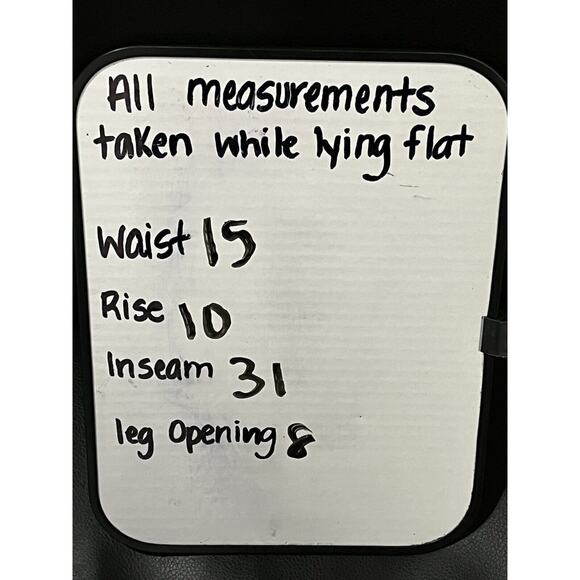 All measurements
taken while lying flat
Waist 15
Rise 10
Inseam 31
leg Opening 8